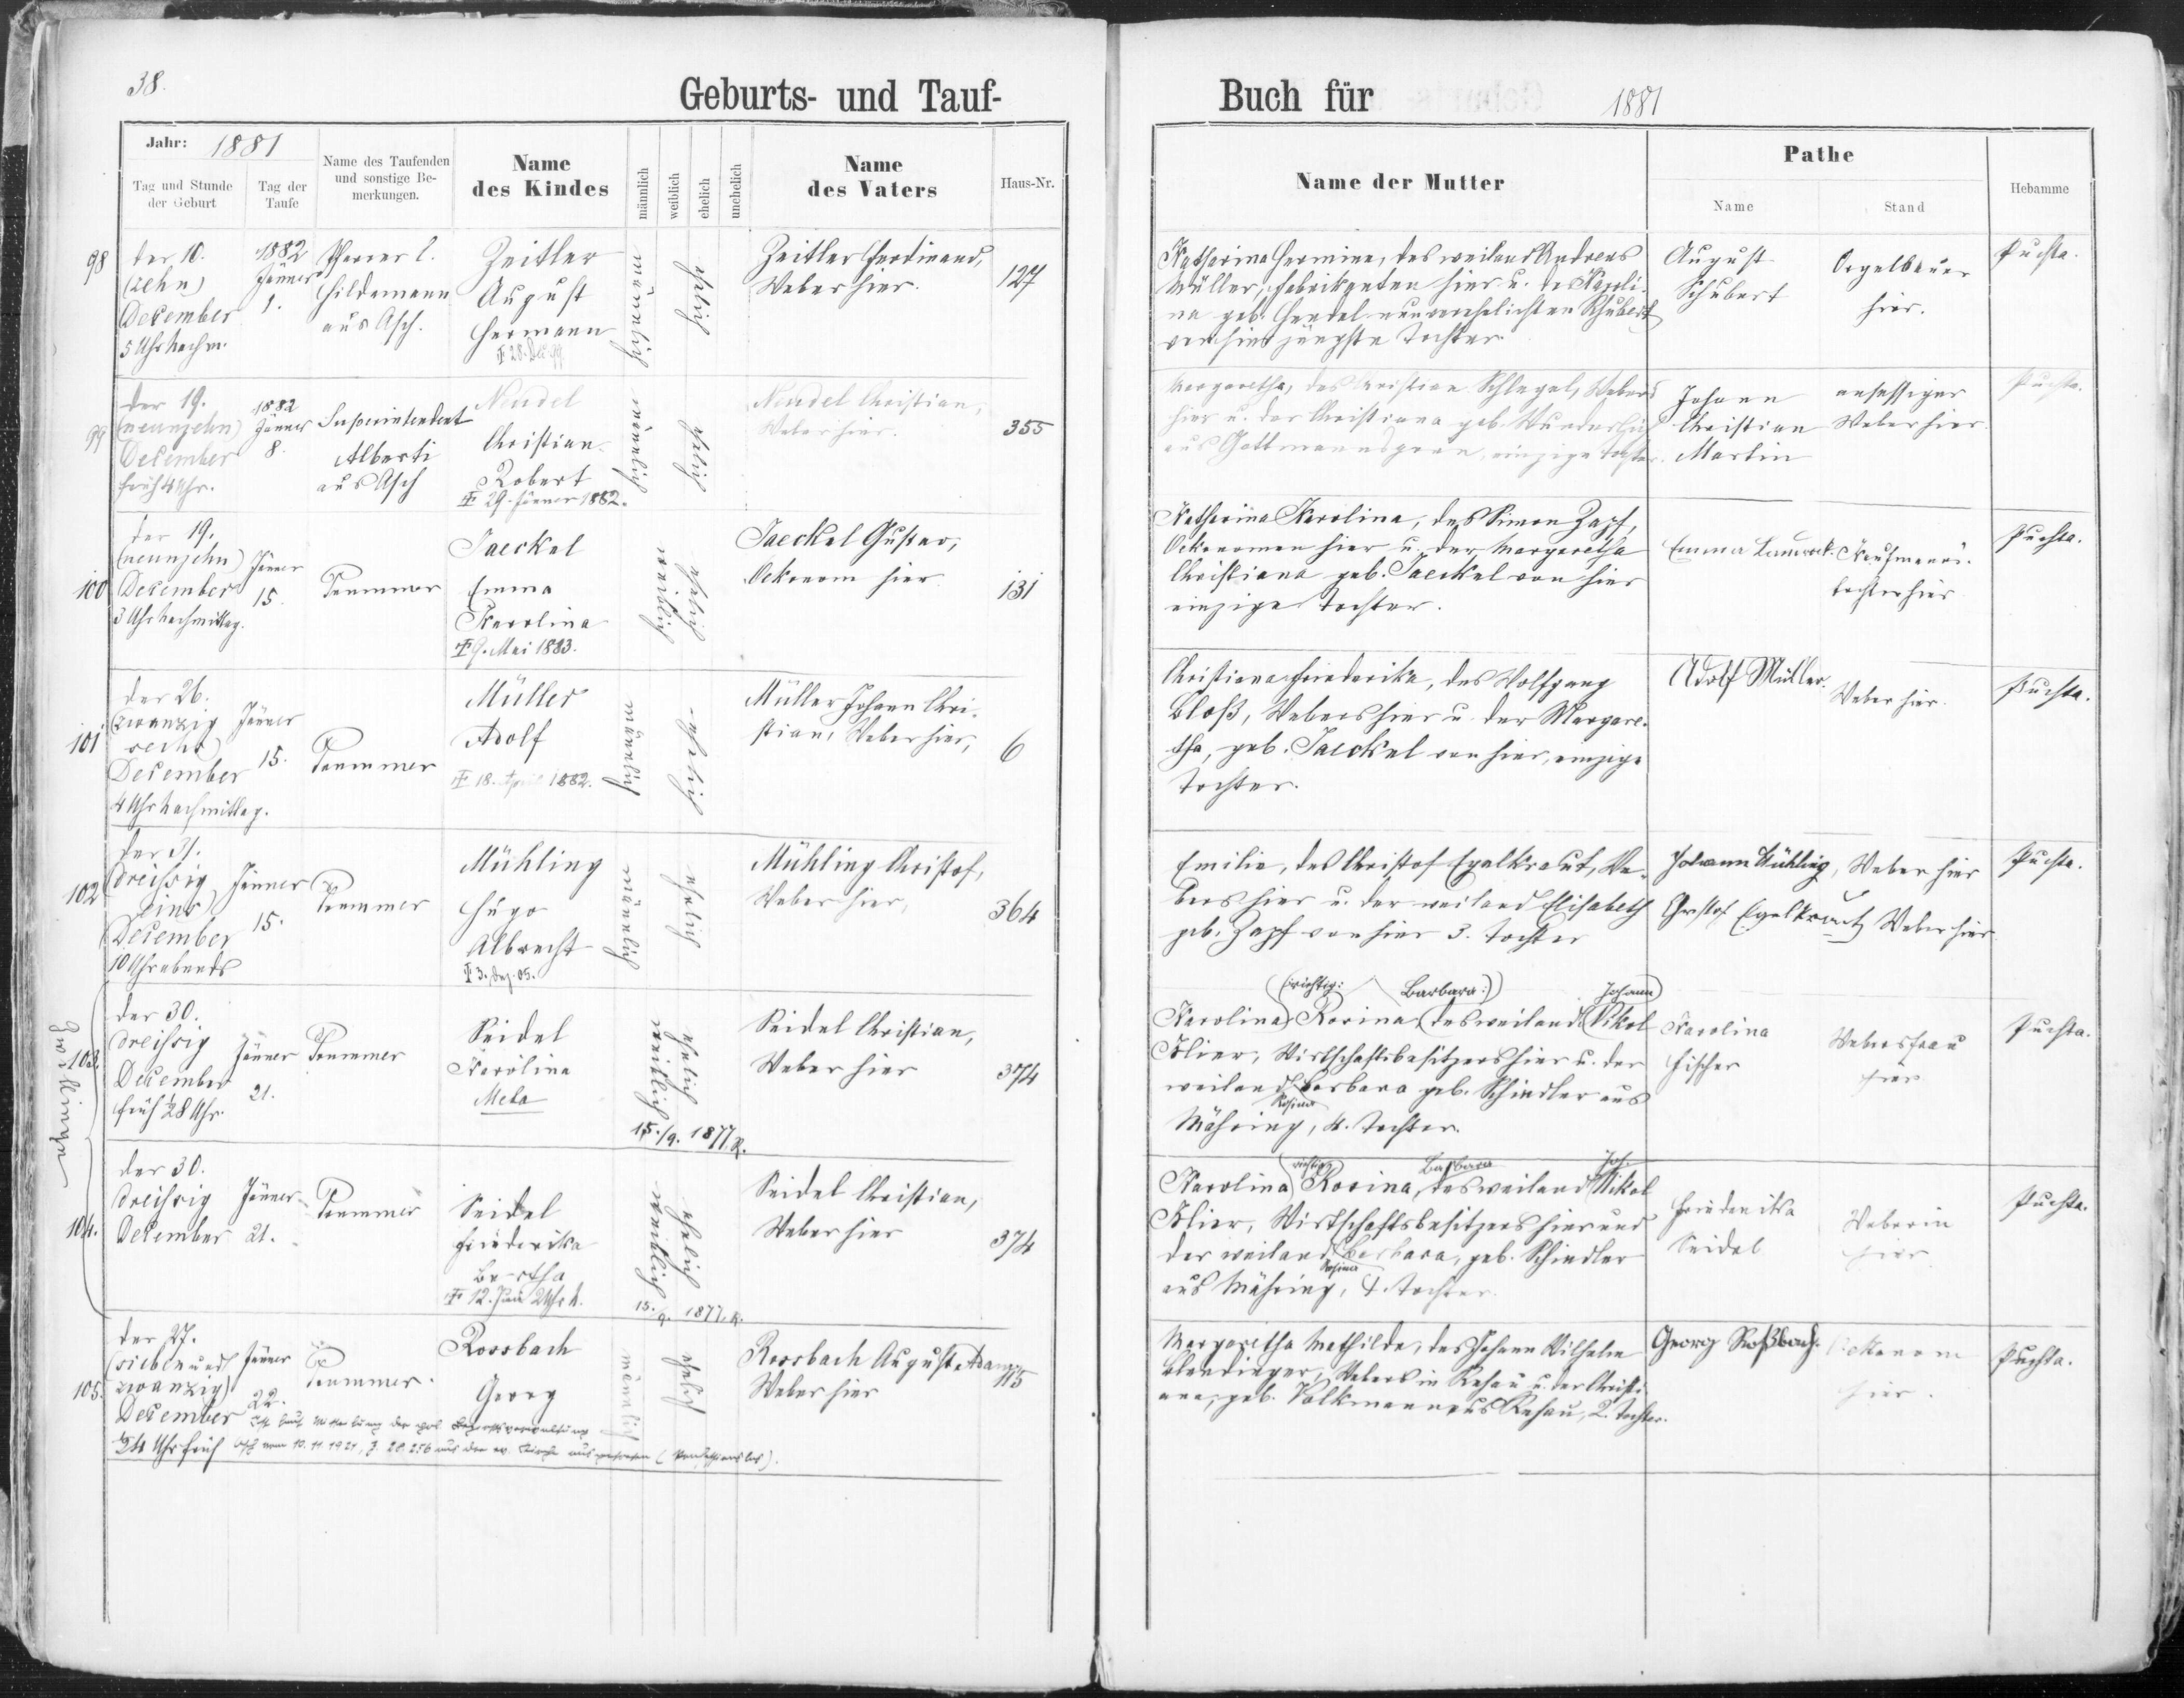 38.
Geburts- und Tauf-
Jahr: 1881
Tag und Stunde
der Geburt
Tag der
Taufe
Name des Taufenden
und sonstige Be-
merkungen.
Name
des Kindes
männlich
weiblich
ehelich
unehelich
Name
des Vaters
Haus-Nr.
98
der 10.
(zehn)
December
5 Uhr Nachm.
1882
Jänner
1.
Pfarrer C.
Hildemann
aus Asch.
Zeitler
August
Hermann
männlich
ehelich
Zeitler Ferdinand,
Weber hier.
127
99
der 19.
(neunzehn)
December
früh 4 Uhr.
1882
Jänner
8.
Superintendent
Alberti
aus Asch
Neudel
Christian
Robert
29. Jänner 1882.
männlich
ehelich
Neudel Christian,
Weber hier.
355
100
der 19.
(neunzehn)
December
3 Uhr Nachmittag.
Jänner
15.
Jaeckel
Emma
Karolina
9. Mai 1883.
weiblich
ehelich
Jaeckel Gustav,
Oekonom hier.
131
101
der 26.
(zwanzig
sechs)
December
4 Uhr Nachmittag.
Jänner
15.
Müller
Adolf
18. April 1882.
männlich
ehelich
Müller Johann Chri-
stian, Weber hier,
6
102
der 31.
(dreissig
eins)
December
10 Uhr abends
Jänner
15.
Mühling
Hugo
Albrecht
3. Dez. 05.
männlich
ehelich
Mühling Christof,
Weber hier,
364
Zwillinge
103.
der 30.
dreissig
December
früh ½8 Uhr.
Jänner
21.
Seidel
Karolina
Meta
weiblich
ehelich
15./9. 1877
Seidel Christian,
Weber hier
374
104.
der 30.
dreissig
December
Jänner
21.
Seidel
Friederika
Bertha
weiblich
ehelich
15./9. 1877.
Seidel Christian,
Weber hier
374
105.
der 27.
(sieben und
zwanzig)
December
½4 Uhr früh
Jänner
22.
Rossbach
Georg
männlich
ehelich
Rossbach August Adam
Weber hier
115
Buch für 1881
Name der Mutter
Pathe
Name
Stand
Hebamme
Katharina Hermine, des weiland Andreas
Müller, Fabrikanten hier u. der Karoli-
na geb. Hendel nunverehelichten Schubert
von hier jüngste Tochter.
August
Schubert
Orgelbauer
hier.
Puchta.
Margaretha, des Christian Schlegel, Webers
hier u. der Christiana geb. Wunderlich
aus Gottmannsgrün, einzige Tochter.
Johann
Christian
Martin
ansässiger
Weber hier.
Puchta.
Katharina Karolina, des Simon Zapf,
Oekonomen hier u. der Margaretha
Christiana geb. Jaeckel von hier
einzige Tochter.
Emma
Kaufmanns-
tochter hier
Puchta.
Christiana Friederika, des Wolfgang
Bloß, Webers hier u. der Margare-
tha, geb. Jaeckel von hier, einzige
Tochter.
Adolf Müller.
Weber hier.
Puchta.
Emilie, des Christof Egelkraut, We-
bers hier u. der weiland Elisabeth
geb. Zapf von hier 3. Tochter
Johann Mühling, Weber hier
Christof Egelkraut, Weber hier
Puchta.
(richtig: Barbara:) Johann
Karolina Rosina, des weiland Nikol
Klier, Wirtschaftsbesitzers hier u. der
weiland Barbara geb. Schindler aus
Rosina
Mähring, 4. Tochter.
Karolina
Fischer
Webersfrau
hier
Puchta.
richtig Barbara Joh.
Karolina Rosina, des weiland Nikol
Klier, Wirtschaftsbesitzers hier und
der weiland Barbara, geb. Schindler
Rosina
aus Mähring, 4. Tochter.
Friederika
Seidel
Weberin
hier
Puchta.
Margaretha Mathilde, des Johann Wilhelm
Webers in Rehau u. der Christi-
ana, geb. Volkmann aus Rehau, 2. Tochter.
Georg Roßbach.
Oekonom
hier.
Puchta.